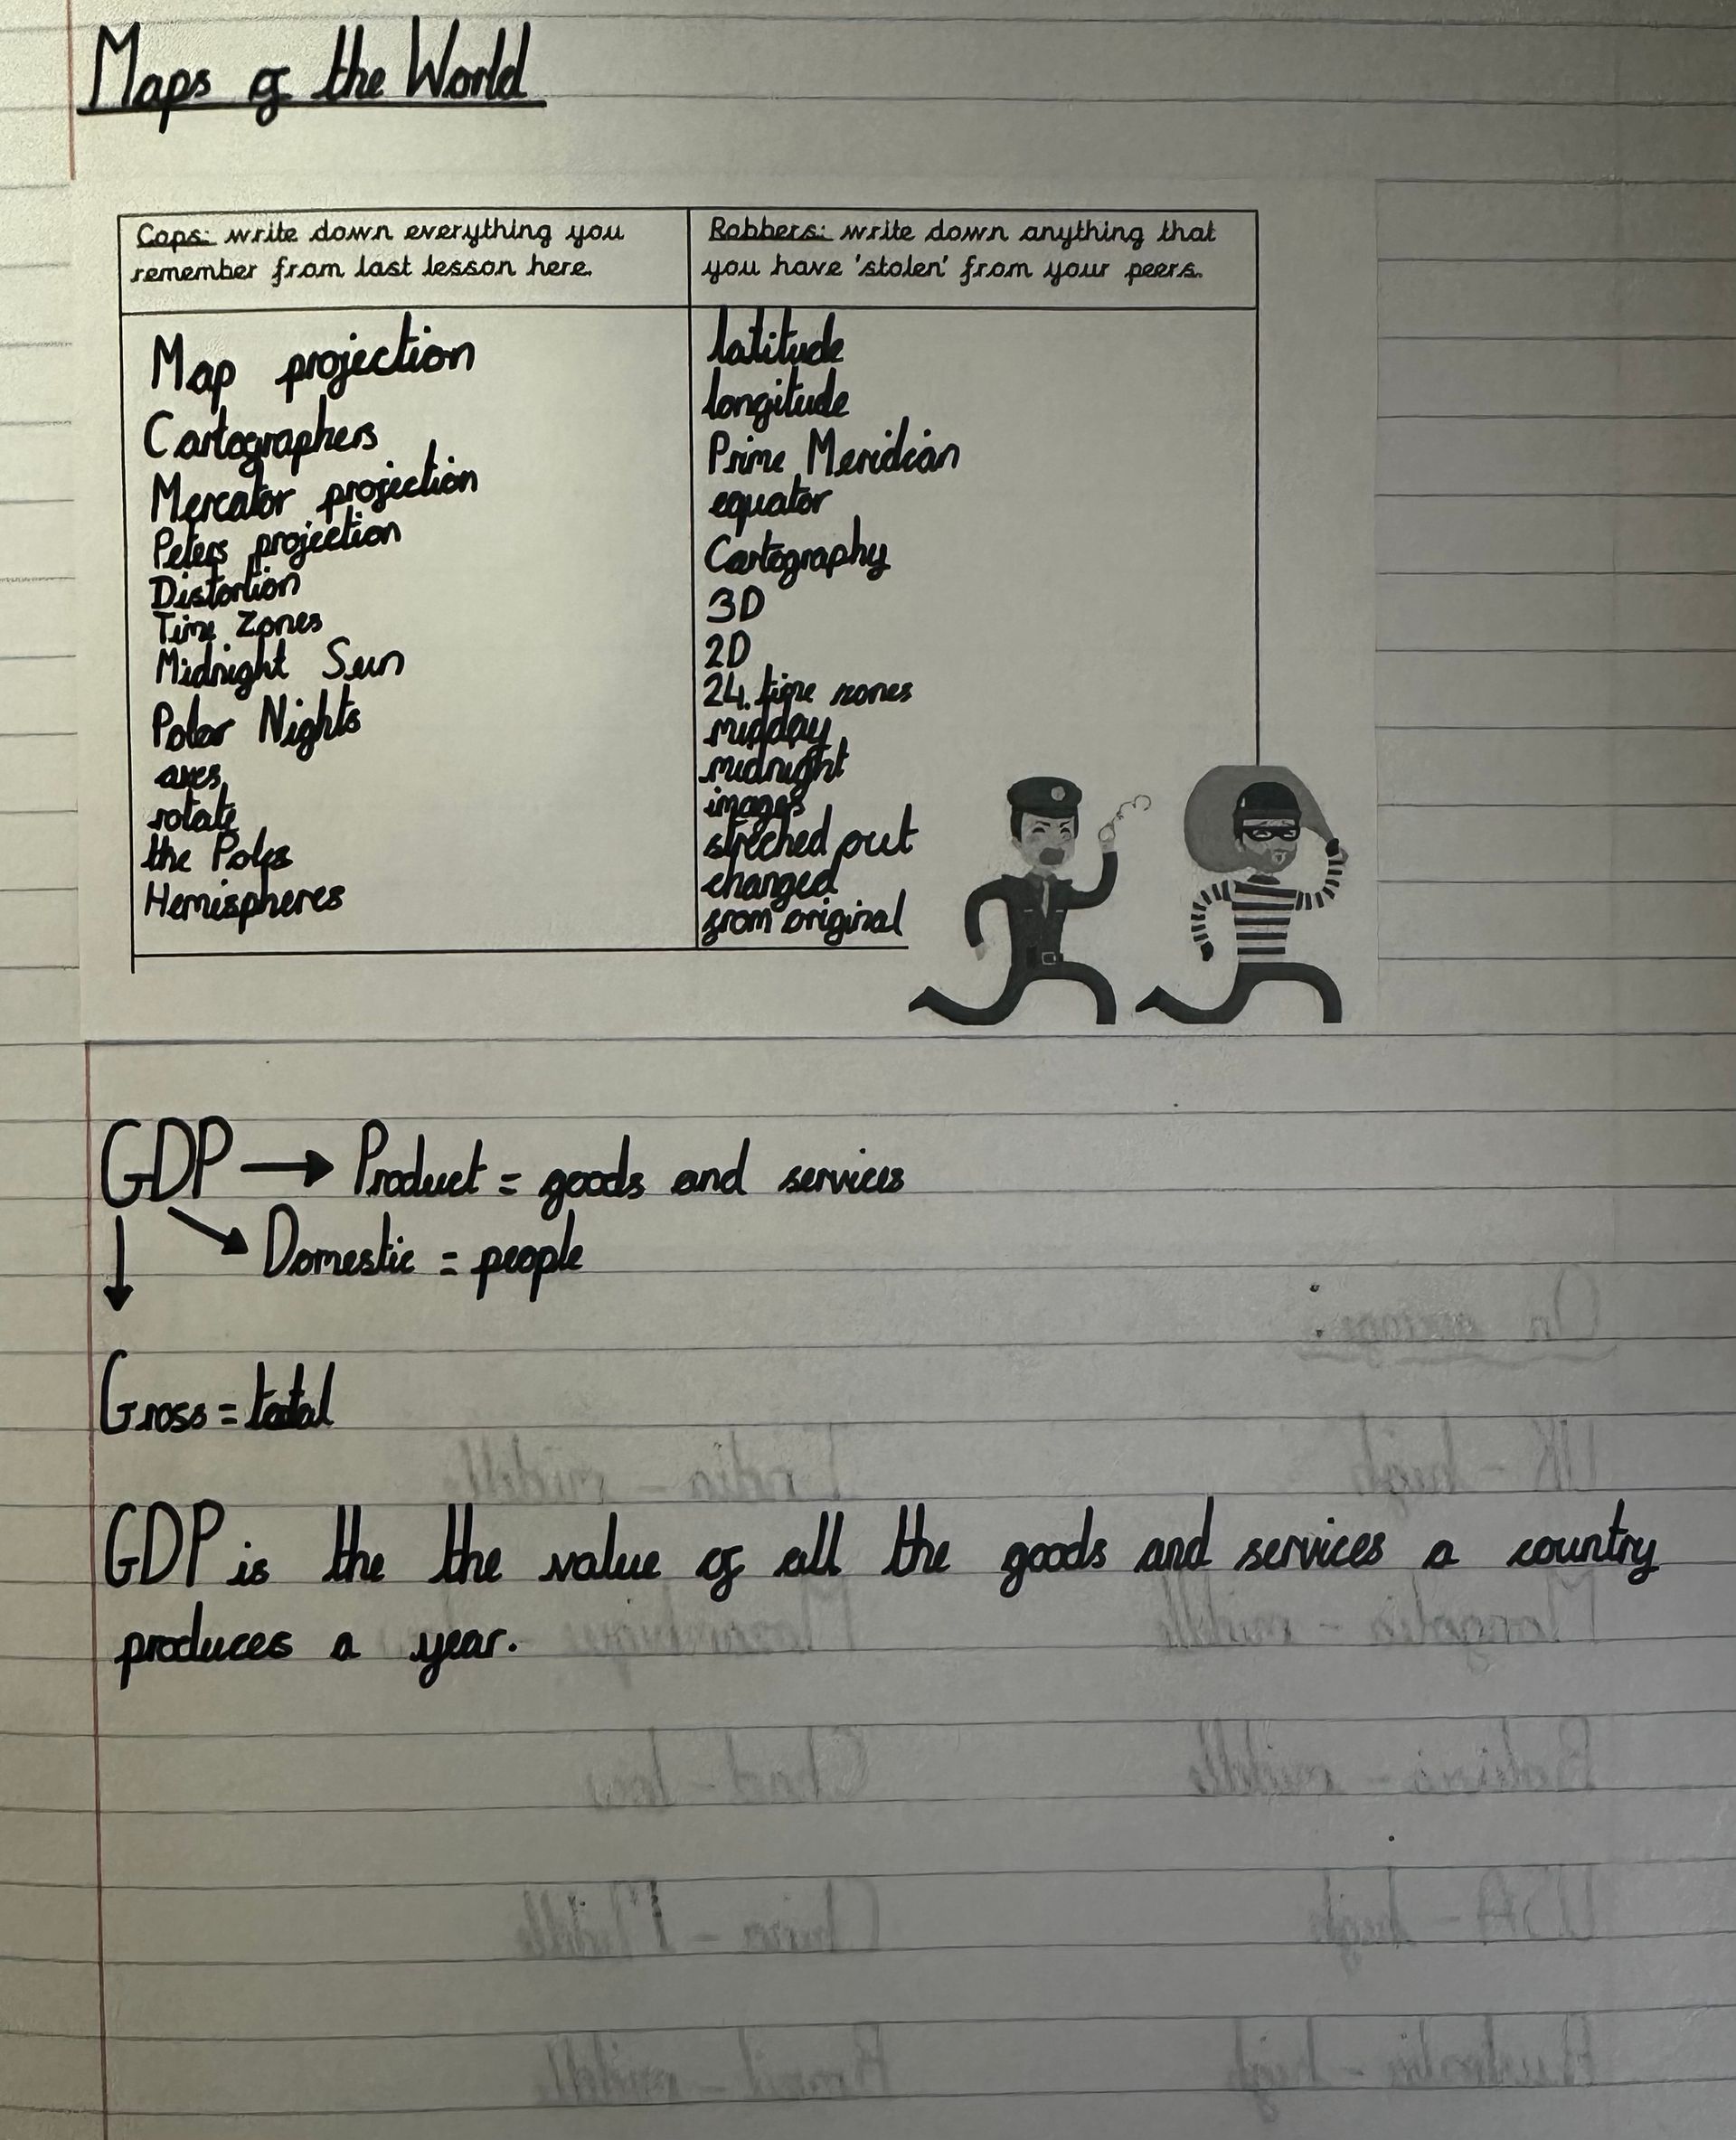 Maps of the World
Cops: write down everything you
remember from last lesson here.
Robbers: write down anything that
you have 'stolen' from your peers.
Map projection
Cartographers
Mercator projection
Peters projection
Distortion
Time Zones
Midnight Sun
Polar Nights
axes
rotate
the Poles
Hemispheres
latitude
longitude
Prime Meridian
equator
Cartography
3D
2D
24 time zones
midday
midnight
images
streched out
changed
from original
GDP → Product = goods and services
Domestic = people
Gross = total
GDP is the the value of all the goods and services a country
produces a year.
On average:
UK - high
India - middle
Mongolia - middle
Mozambique -
Bolivia - middle
Chad - low
USA - high
China - Middle
Australia - high
Brazil - middle